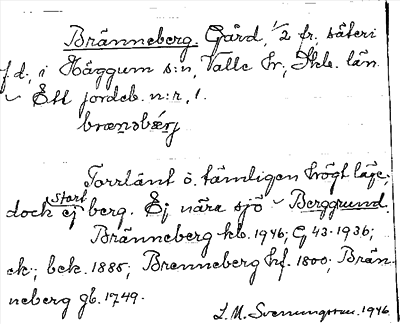 Bränneberg. Gård, 1/2 fr. säteri
f.d., i Häggum s:n, Valle hr, Skb. län
~ Ett jordeb. n:r, 1.
brænəbærj
Torrlänt o. tämligen högt läge,
dock ej stort berg. Ej nära sjö ~ Berggrund.
Bränneberg kb. 1946; GJ 43-1936;
ek.; bek. 1885; Brenneberg hf. 1800; Brän-
neberg gb. 1749.
L. M. Svenungsson. 1946